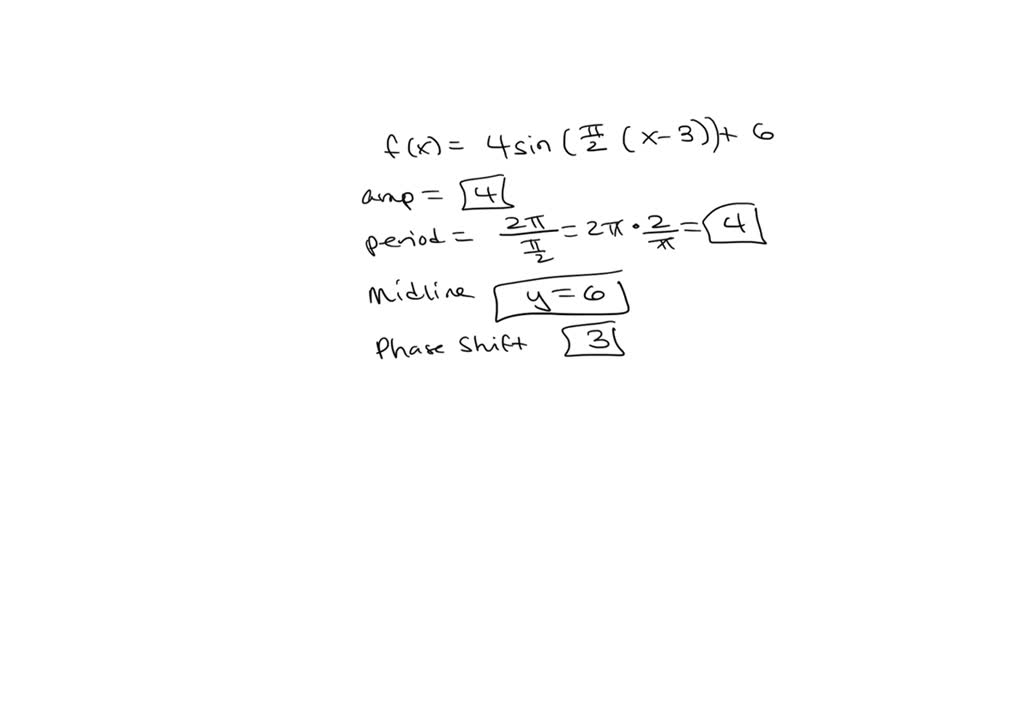 f(x) = 4sin(π/2 (x-3))+ 6
amp = 4
period = 2π/(π/2) = 2π · 2/π = 4
Midline y=6
Phase Shift 3